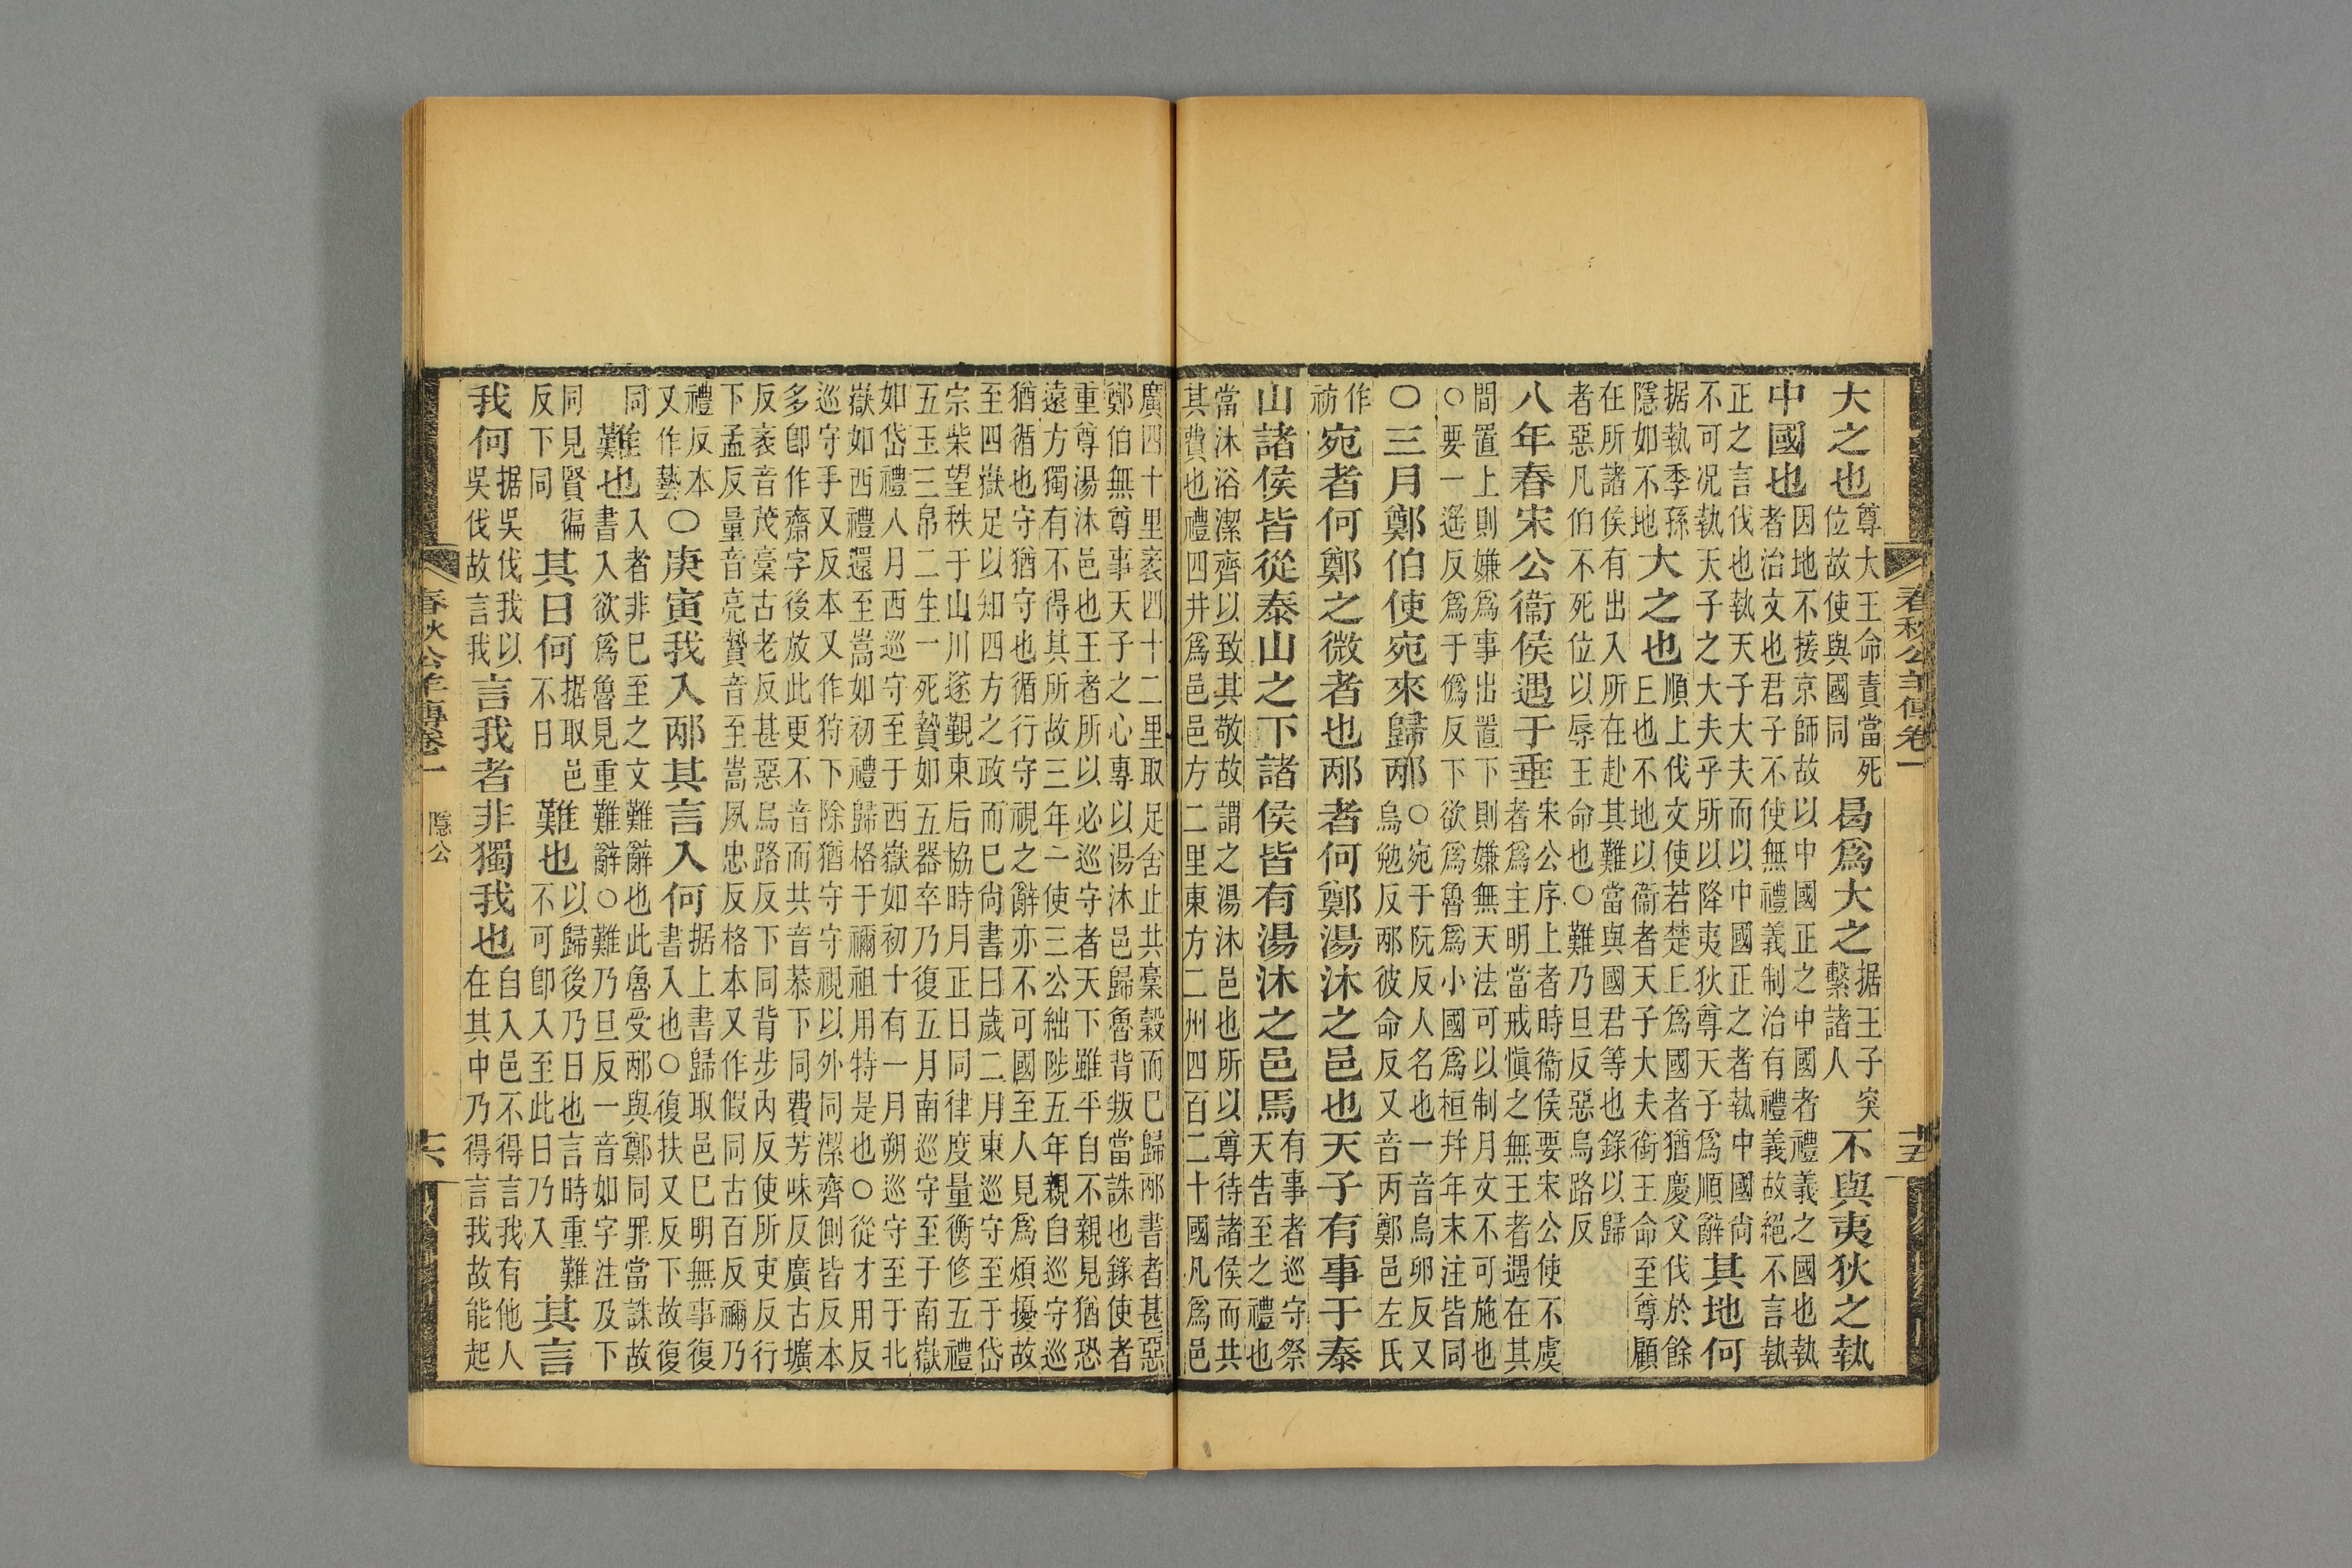 春秋公羊傳卷一 十五
大之也尊大王命責當死位故使與國同曷爲大之据王子突繫諸人不與夷狄之執
中國也因地不接京師故以中國正之中國者禮義之國也執者治文也君子不使無禮義制治有禮義故絕不言執
正之言伐也執天子大夫而以中國正之者執中國尚不可况執天子之大夫乎所以降夷狄尊天子爲順辭其地何
据執季孫隱如不地大之也順上伐文使若楚王爲國者猶慶父伐於餘王也不地以衞者天子大夫銜王命至尊顧
在所諸侯有出入所在赴其難當與國君等也錄以歸者惡凡伯不死位以辱王命也○難乃旦反惡烏路反
八年春宋公衞侯遇于垂宋公序上者時衞侯要宋公使不虞者爲主明當戒愼之無王者遇在其
間置上則嫌爲事出置下則嫌無天法可以制月文不可施也○要一遙反爲于僞反下欲爲魯爲小國爲桓幷年末注皆同
○三月鄭伯使宛來歸邴○宛于阮反人名也一音烏卯反又烏勉反邴彼命反又音丙鄭邑左氏
作祊宛者何鄭之微者也邴者何鄭湯沐之邑也天子有事于泰
山諸侯皆從泰山之下諸侯皆有湯沐之邑焉有事者巡守祭天告至之禮也
當沐浴潔齊以致其敬故謂之湯沐邑也所以尊待諸侯而共其費也禮四井爲邑邑方二里東方二州四百二十國凡爲邑
廣四十里袤四十二里取足舍止共槀穀而已歸邴書者甚惡鄭伯無尊事天子之心專以湯沐邑歸魯背叛當誅也錄使者
重尊湯沐邑也王者所以必巡守者天下雖平自不親見猶恐遠方獨有不得其所故三年一使三公絀陟五年親自巡守巡
猶循也守猶守也循行守視之辭亦不可國至人見爲煩擾故至四嶽足以知四方之政而已尚書曰歲二月東巡守至于岱
宗柴望秩于山川遂覲東后協時月正日同律度量衡修五禮五玉三帛二生一死贄如五器卒乃復五月南巡守至于南嶽
如岱禮八月西巡守至于西嶽如初十有一月朔巡守至于北嶽如西禮還至嵩如初禮歸格于禰祖用特是也○從才用反
巡守手又反本又作狩下除猶守守視以外同潔齊側皆反本多卽作齋字後放此更不音而共音恭下同費芳味反廣古壙
反袤音茂槀古老反甚惡烏路反下同背步內反使所吏反行下孟反量音亮贄音至嵩夙忠反格本又作假同古百反禰乃
禮反本又作藝○庚寅我入邴其言入何据上書歸取邑已明無事復書入也○復扶又反下故復
同難也入者非已至之文難辭也此魯受邴與鄭同罪當誅故書入欲爲魯見重難辭○難乃旦反一音如字注及下
同見賢徧反下同其日何据取邑不日難也以歸後乃日也言時重難不可卽入至此日乃入其言
我何据吳伐我以吳伐故言我言我者非獨我也自入邑不得言我有他人在其中乃得言我故能起
春秋公羊傳卷一 隱公 十六